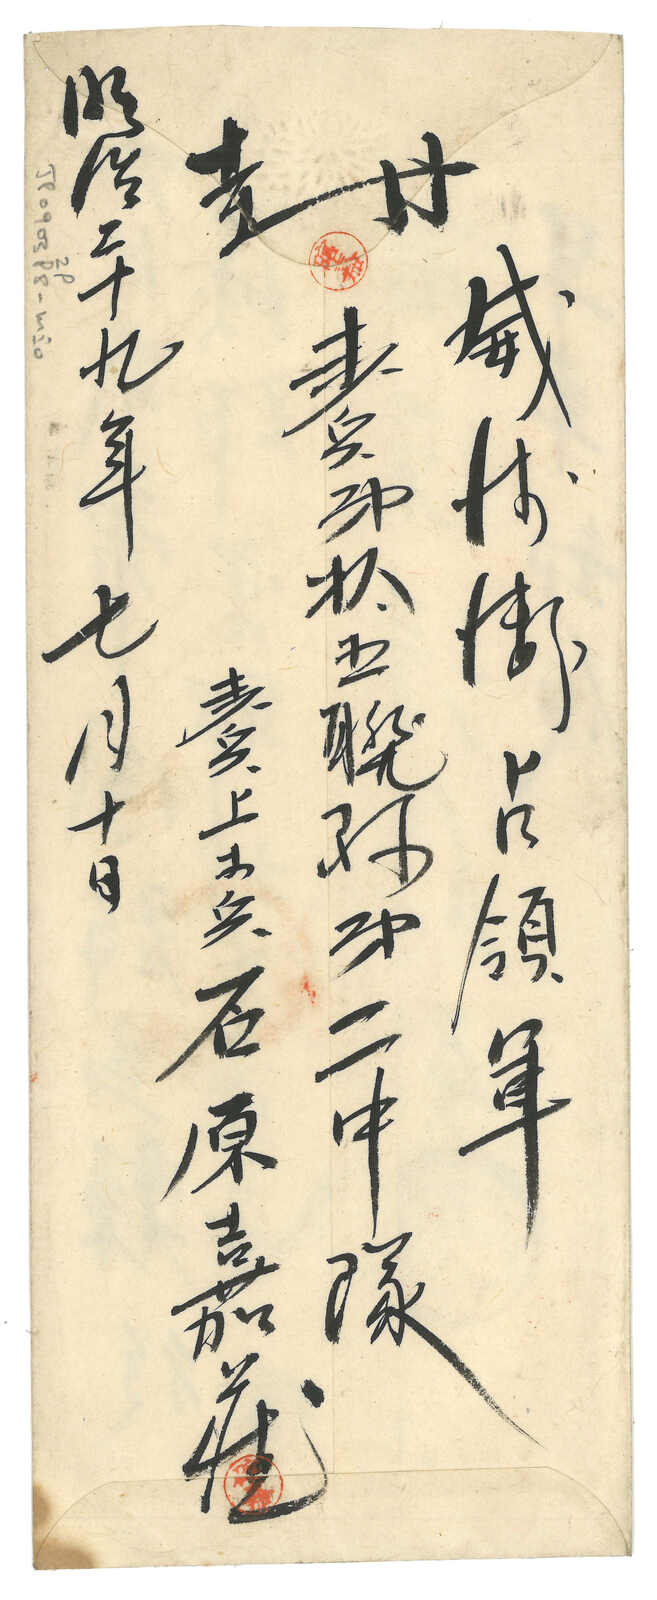 威海衛占領軍
歩兵第拾五聯隊第二中隊
歩兵上等兵石原嘉蔵
明治二十九年七月十日